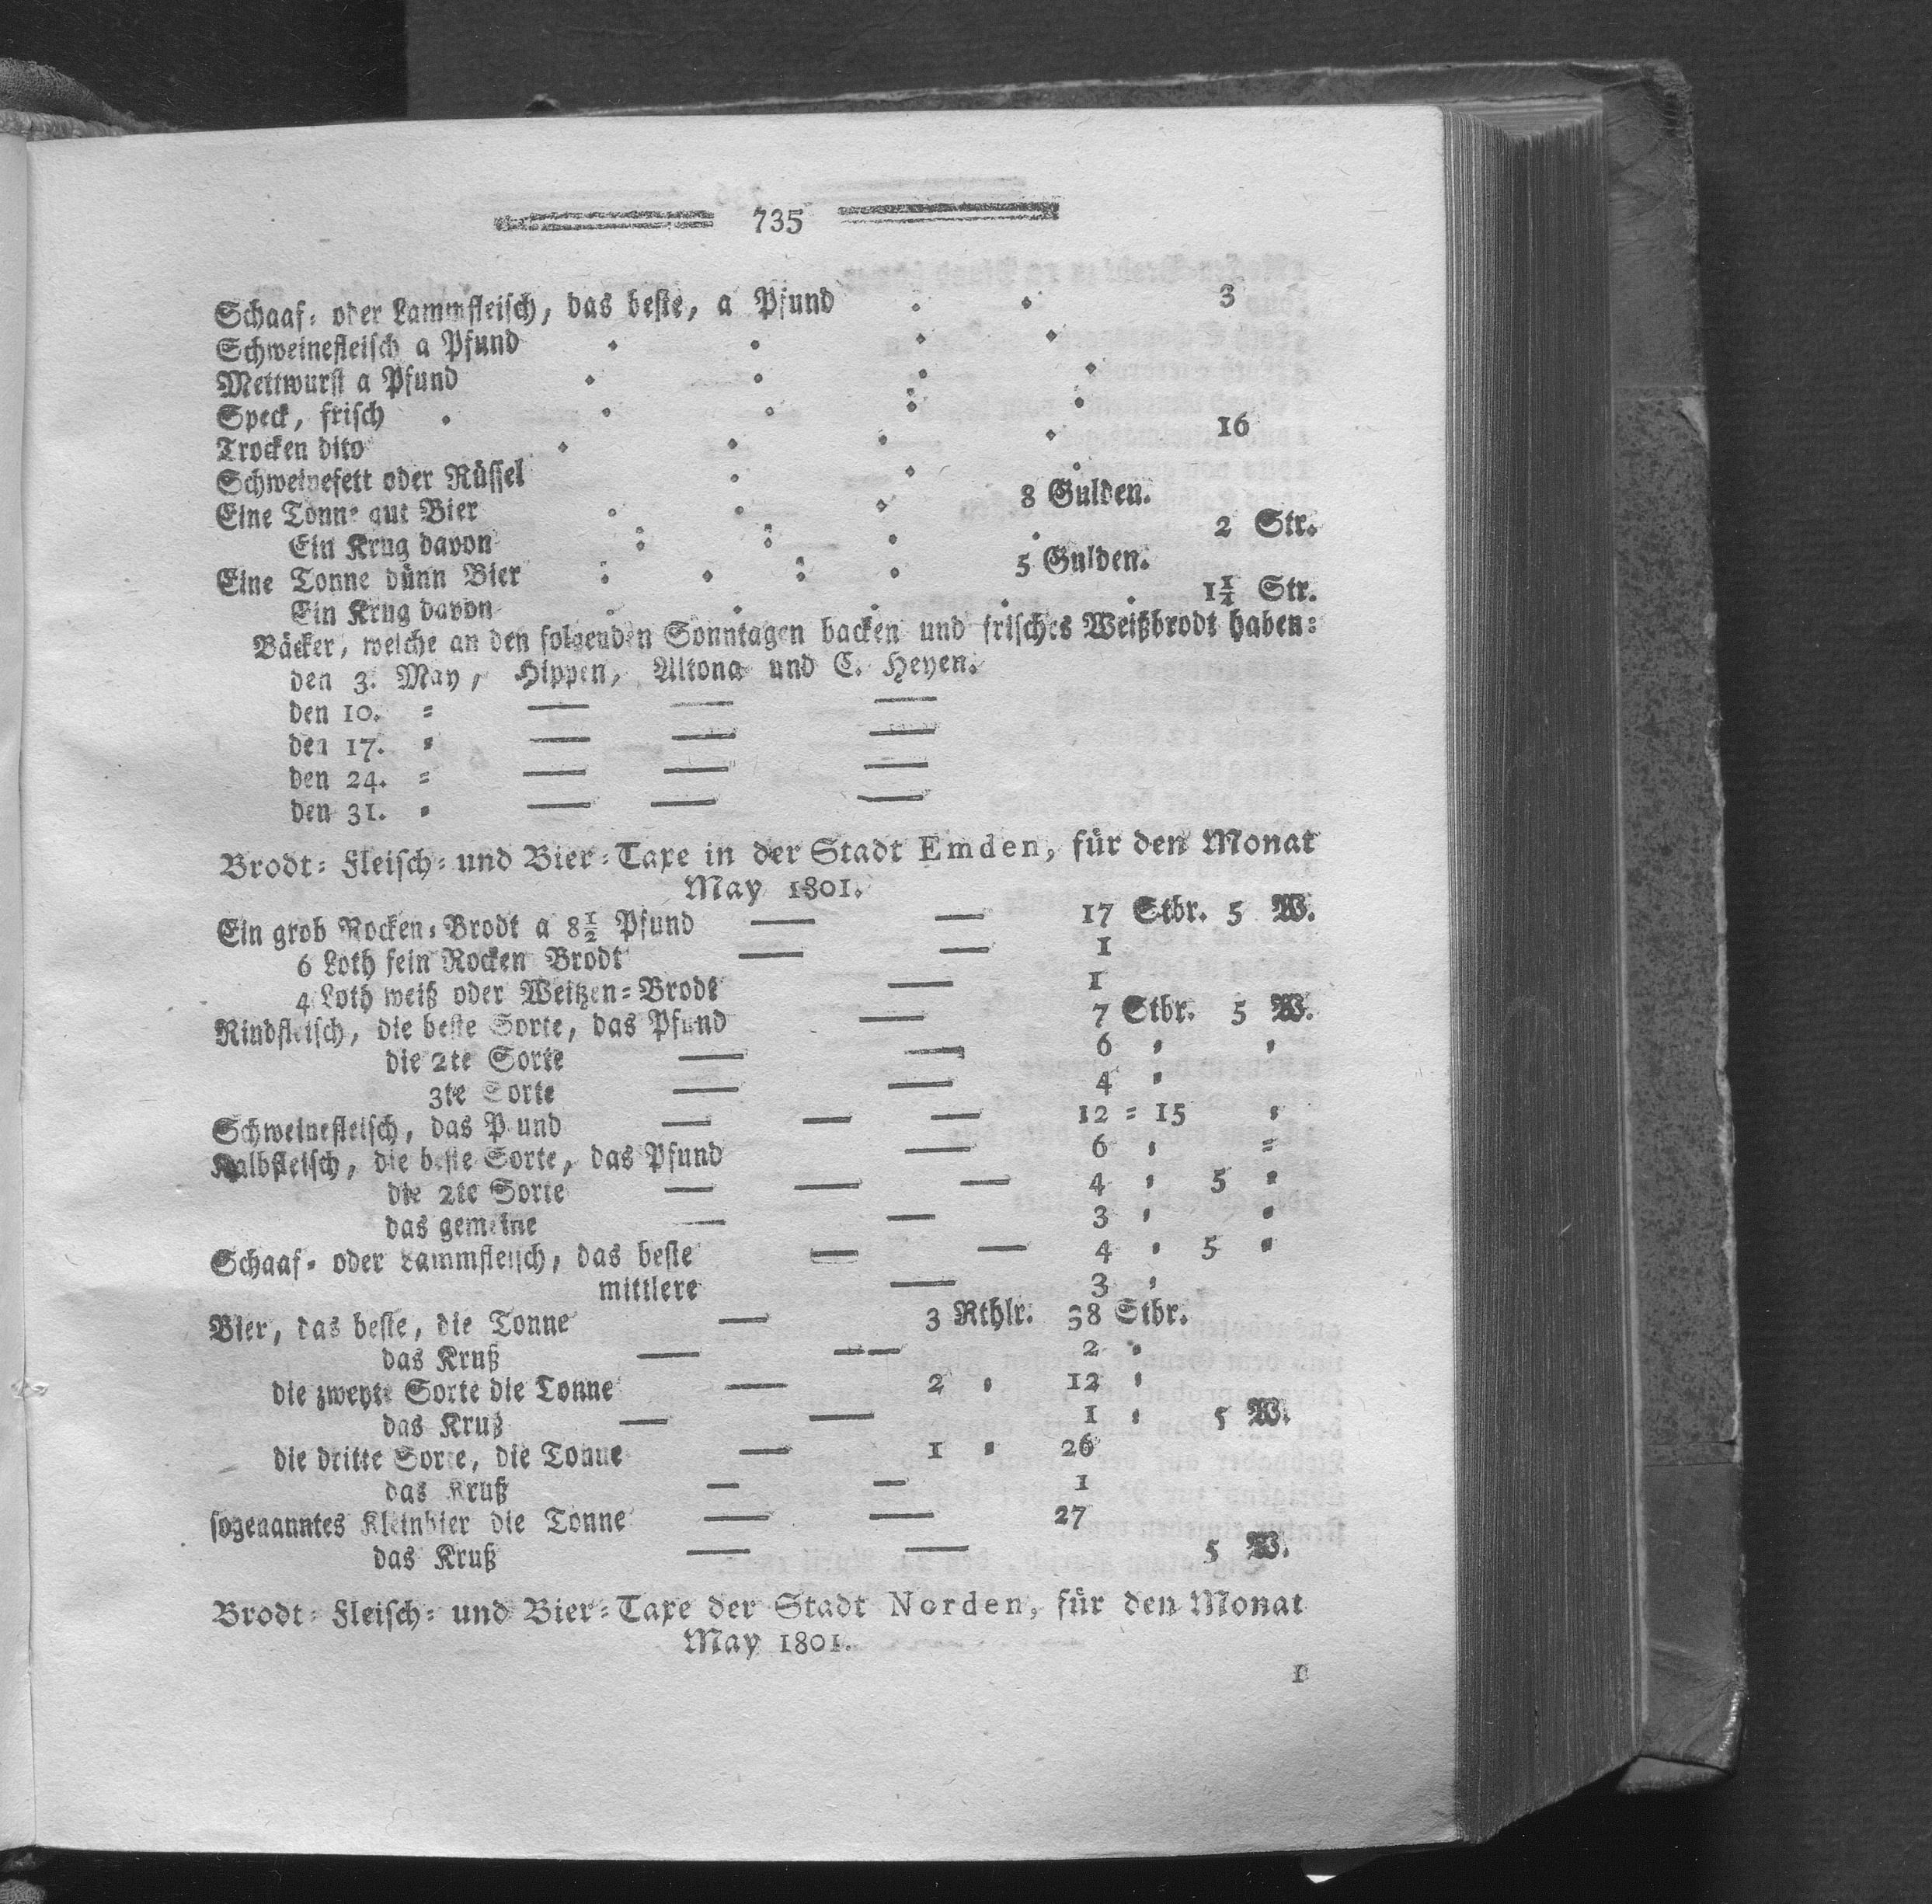 735
Schaaf- oder Lammfleisch, das beste, a Pfund 3
Schweinefleisch a Pfund
Mettwurst a Pfund
Speck, frisch
Trocken dito 16
Schweinefett oder Rüssel
Eine Tonne gut Bier 8 Gulden.
Ein Krug davon 2 Str.
Eine Tonne dünn Bier 5 Gulden.
Ein Krug davon 1½ Str.
Bäcker, welche an den folgenden Sonntagen backen und frisches Weißbrodt haben:
den 3. May, Hippen, Altona und C. Heyen.
den 10. = — — —
den 17. = — — —
den 24. = — — —
den 31. = — — —
Brodt- Fleisch- und Bier-Taxe in der Stadt Emden, für den Monat
May 1801.
Ein grob Rocken-Brodt a 8½ Pfund — — 17 Stbr. 5 W.
6 Loth fein Rocken Brodt — — 1
4 Loth weiß oder Weitzen-Brodt — 1
Rindfleisch, die beste Sorte, das Pfund — 7 Stbr. 5 W.
die 2te Sorte — — 6 = =
3te Sorte — — 4 =
Schweinefleisch, das Pfund — — — 12 = 15 =
Kalbfleisch, die beste Sorte, das Pfund — 6 = =
die 2te Sorte — — — 4 = 5 =
das gemeine — — 3 = =
Schaaf- oder Lammfleisch, das beste — — 4 = 5 =
mittlere — 3 =
Bier, das beste, die Tonne — 3 Rthlr. 38 Stbr.
das Kruß — — — 2 =
die zweyte Sorte die Tonne — 2 = 12 =
das Kruß — — 1 = 5 W.
die dritte Sorte, die Tonne — 1 = 26
das Kruß — — 1
sogenanntes Kleinbier die Tonne — — 27
das Kruß — — 5 W.
Brodt- Fleisch- und Bier-Taxe der Stadt Norden, für den Monat
May 1801.